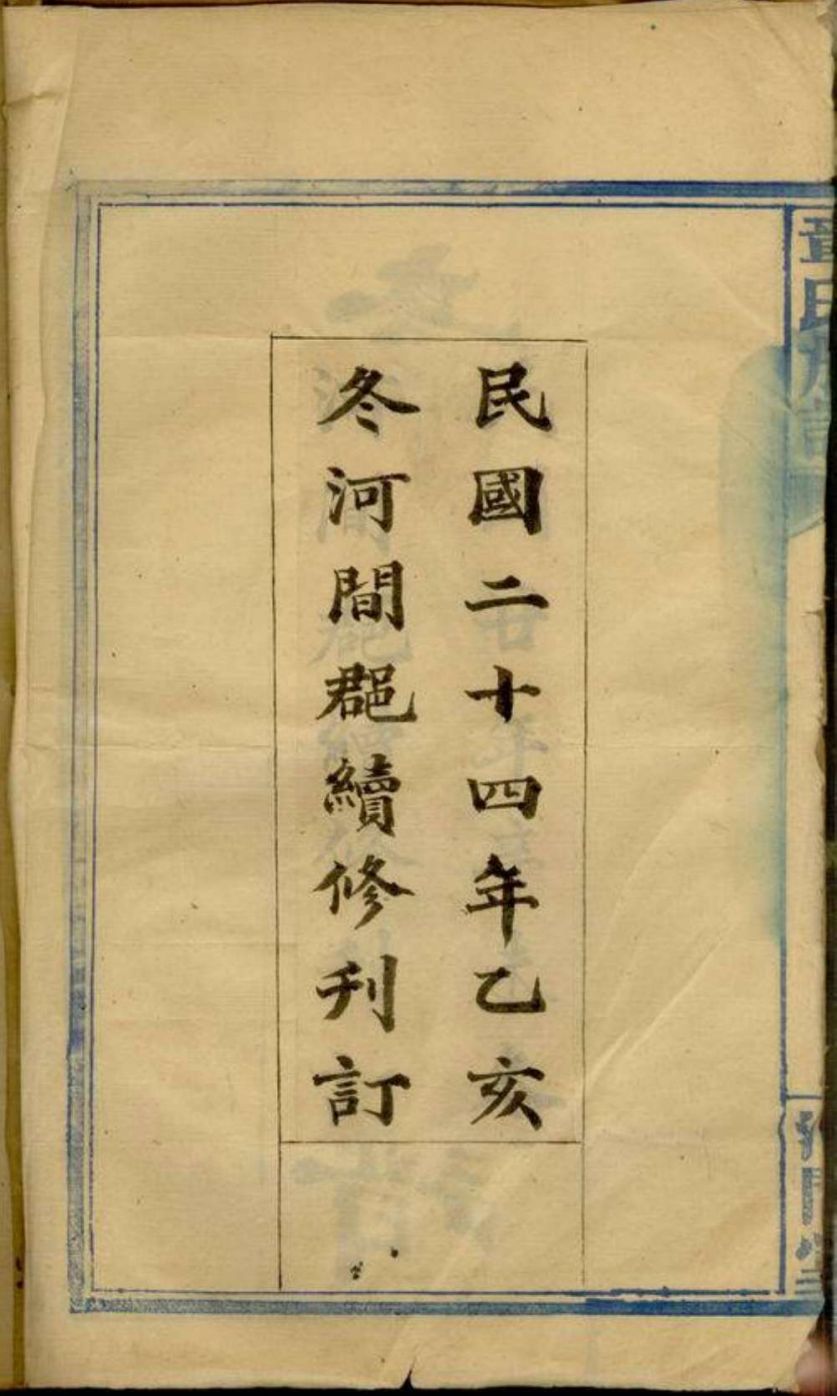 民國二十四年乙亥
冬河間郡續修刋訂
章氏族譜